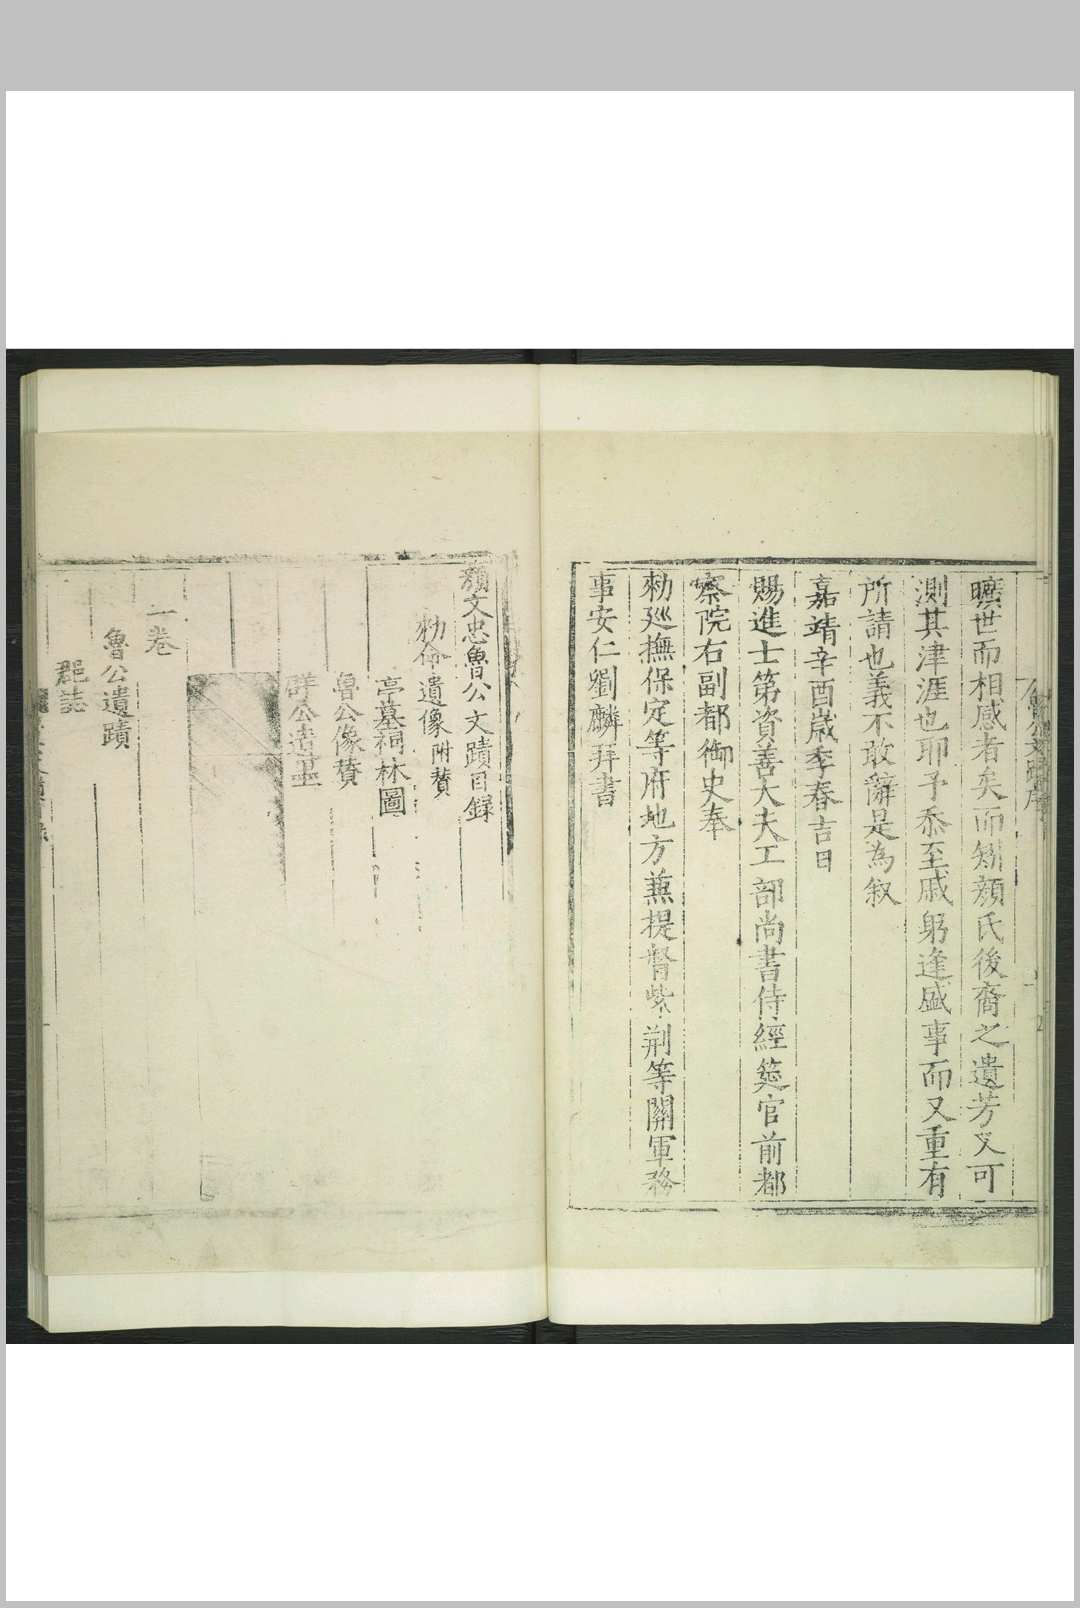 曠世而相感者矣而矧顔氏後裔之遺芳又可
測其津涯也耶予忝至戚躬逢盛事而又重有
所請也義不敢辭是為叙
嘉靖辛酉歳季春吉日
賜進士第資善大夫工部尚書侍經筵官前都
察院右副都御史奉
勑廵撫保定等府地方兼提督紫荆等關軍務
事安仁劉麟拜書
顔文忠魯公文蹟目録
勑命遺像附賛
亭墓祠林圖
魯公像賛
群公遺墨
一卷
魯公遺蹟